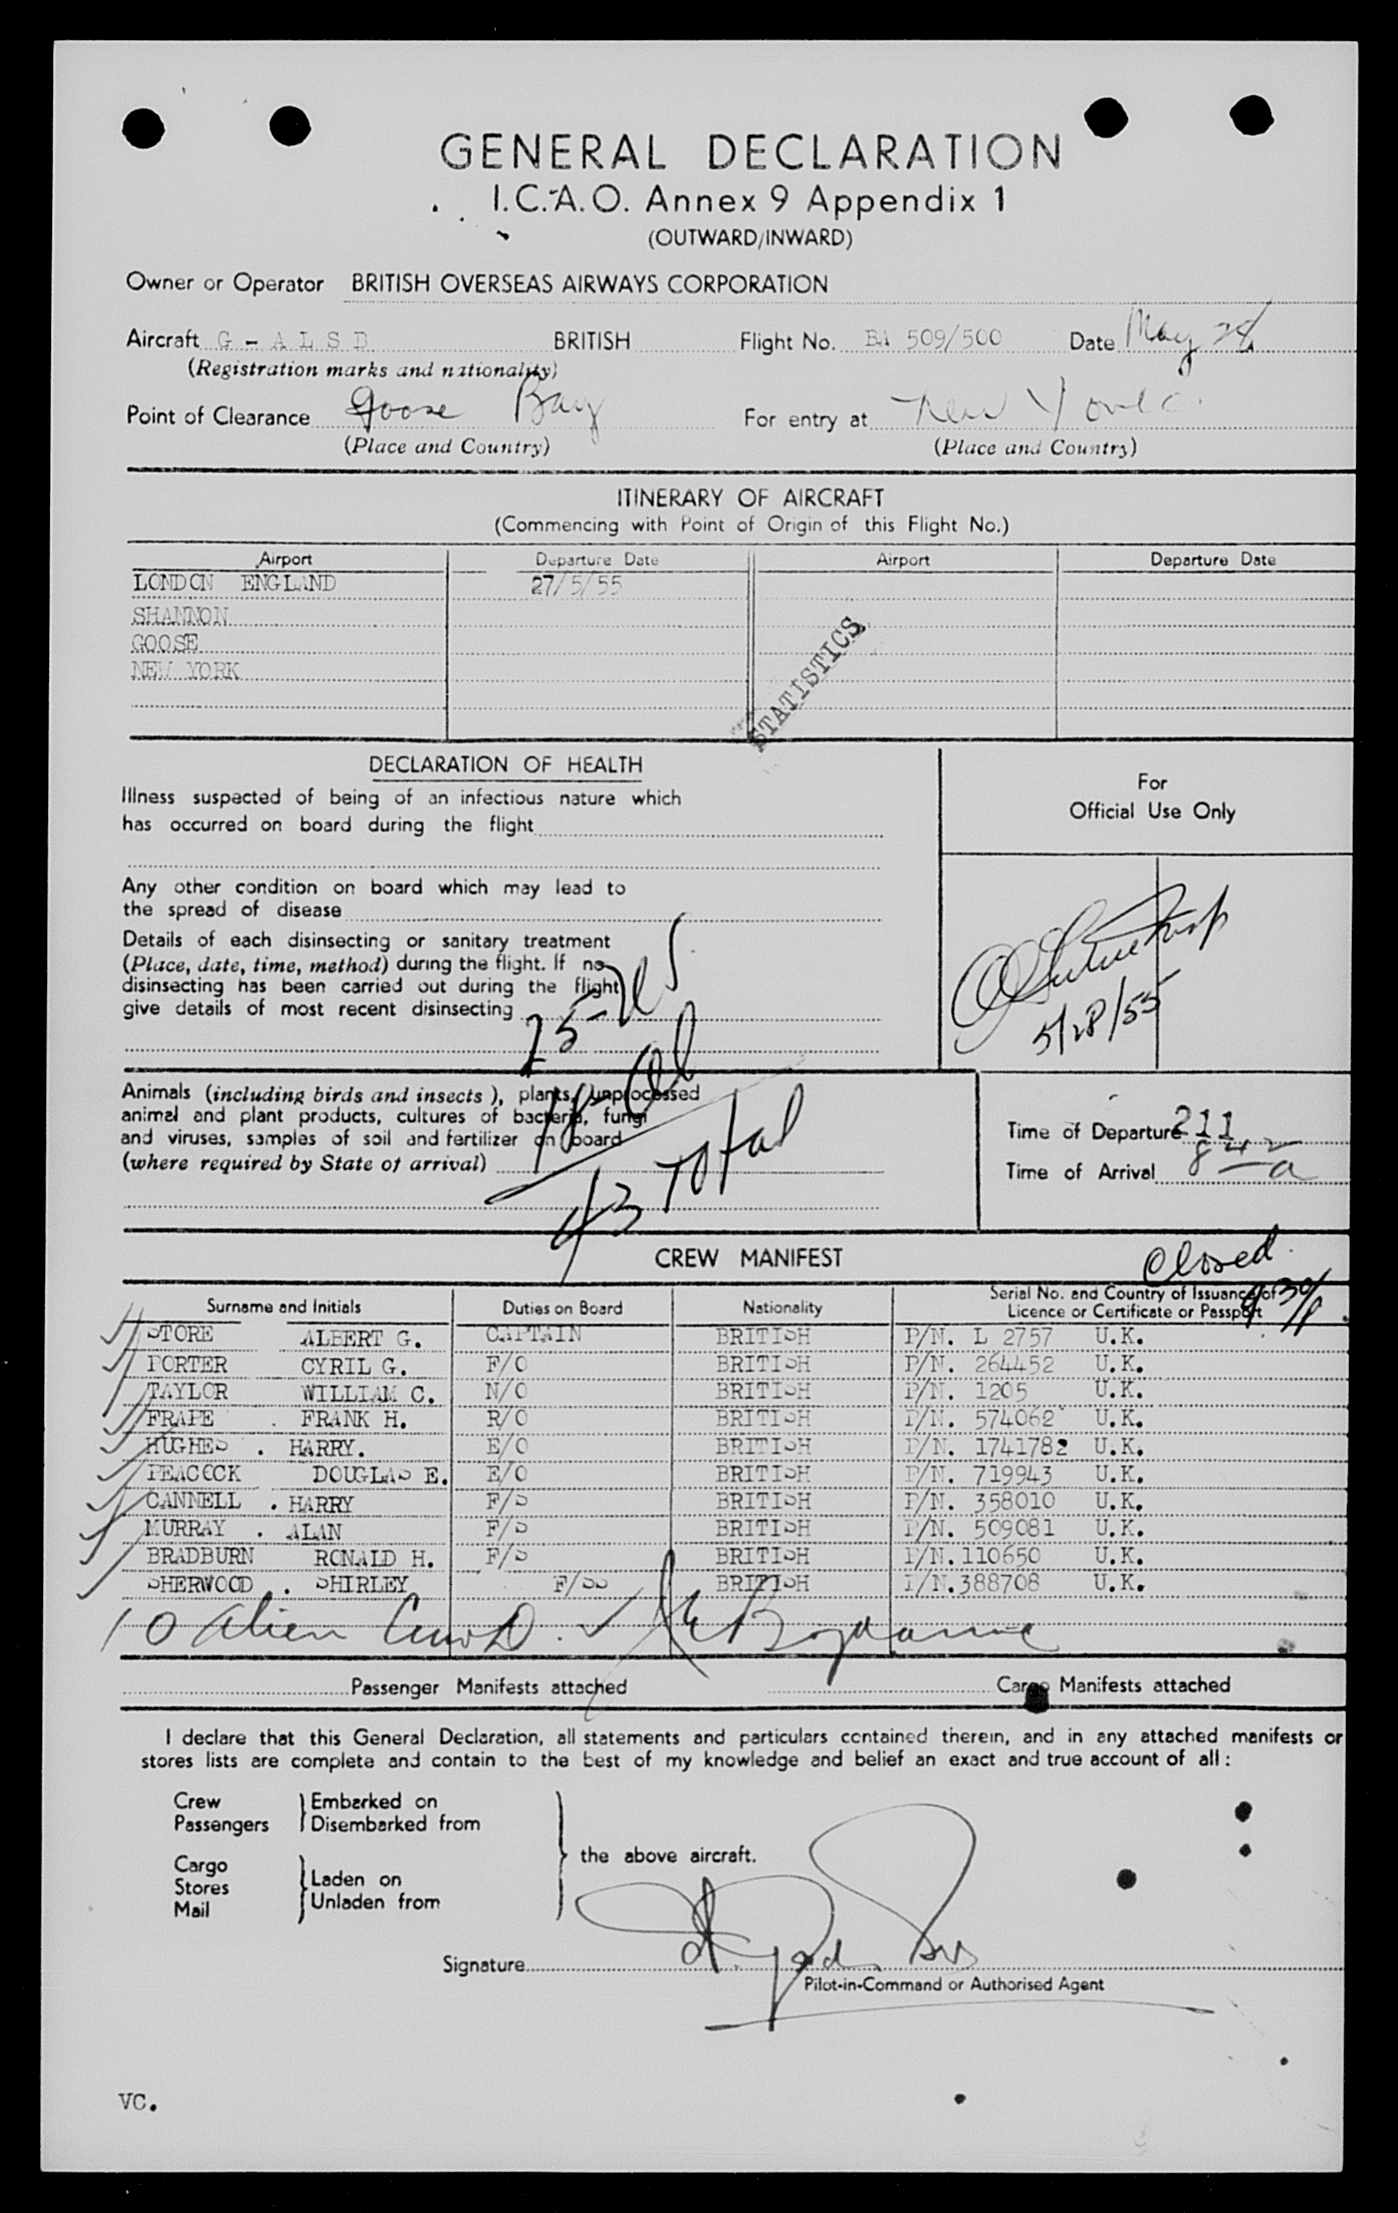 GENERAL DECLARATION
I.C.A.O. Annex 9 Appendix 1
(OUTWARD/INWARD)
Owner or Operator BRITISH OVERSEAS AIRWAYS CORPORATION
Aircraft G - A L S D BRITISH Flight No. BA 509/500 Date May 28
(Registration marks and nationality)
Point of Clearance Goose Bay For entry at New York
(Place and Country) (Place and Country)
ITINERARY OF AIRCRAFT
(Commencing with Point of Origin of this Flight No.)
Airport Departure Date Airport Departure Date
LONDON ENGLAND 27/5/55
SHANNON
GOOSE
NEW YORK
STATISTICS
DECLARATION OF HEALTH
For
Official Use Only
Illness suspected of being of an infectious nature which
has occurred on board during the flight
Any other condition on board which may lead to
the spread of disease
Details of each disinsecting or sanitary treatment
(Place, date, time, method) during the flight. If no
disinsecting has been carried out during the flight
give details of most recent disinsecting
5/28/55
25-US
18-al
43 Total
Animals (including birds and insects), plants, unprocessed
animal and plant products, cultures of bacteria, fungi
and viruses, samples of soil and fertilizer on board
(where required by State of arrival)
Time of Departure 211
Time of Arrival 842a
CREW MANIFEST
Closed
Surname and Initials Duties on Board Nationality Serial No. and Country of Issuance of
Licence or Certificate or Passport
STORE ALBERT G. CAPTAIN BRITISH P/N. L 2757 U.K.
PORTER CYRIL G. F/O BRITISH P/N. 264452 U.K.
TAYLOR WILLIAM C. N/O BRITISH P/N. 1205 U.K.
FRAPE FRANK H. R/O BRITISH P/N. 574062 U.K.
HUGHES . HARRY. E/O BRITISH P/N. 1741782 U.K.
PEACOCK DOUGLAS E. E/O BRITISH P/N. 719943 U.K.
CANNELL . HARRY F/S BRITISH P/N. 358010 U.K.
MURRAY . ALAN F/S BRITISH P/N. 509081 U.K.
BRADBURN RONALD H. F/S BRITISH P/N.110650 U.K.
SHERWOOD . SHIRLEY F/SS BRITISH P/N.388708 U.K.
10 alien Crew
Passenger Manifests attached Cargo Manifests attached
I declare that this General Declaration, all statements and particulars contained therein, and in any attached manifests or
stores lists are complete and contain to the best of my knowledge and belief an exact and true account of all:
Crew Embarked on
Passengers Disembarked from
the above aircraft.
Cargo
Stores Laden on
Mail Unladen from
Signature
Pilot-in-Command or Authorised Agent
VC.